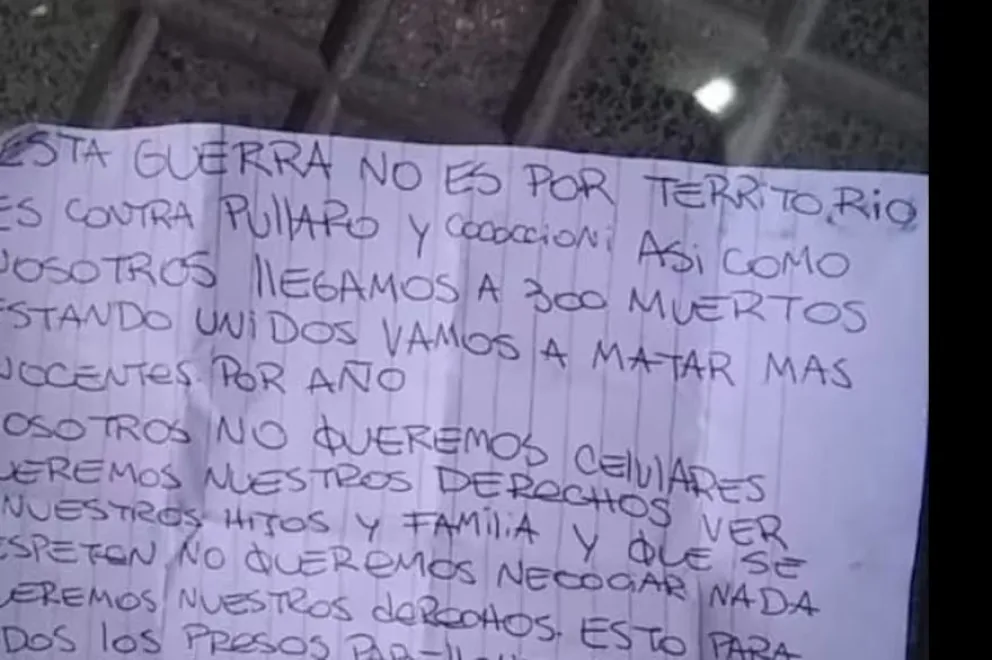 ESTA GUERRA NO ES POR TERRiTO.RiO
ES CONTRA PUllARO y COCOCCiONi ASi COMO
NOSOTROS llEGAMOS A 300 MUERTOS
ESTANDO UNiDOS VAMOS A MATAR MAS
NOCENTES POR AÑO
OSOTROS NO QUEREMOS CElUlARES
UEREMOS NUESTROS DERECHOS VER
NUESTROS HIJOS y FAMiliA y QUE SE
ESPETEN NO QUEREMOS NEGOCIAR NADA
UEREMOS NUESTROS dERECHOS. ESTO PARA
DOS lOS PRESOS